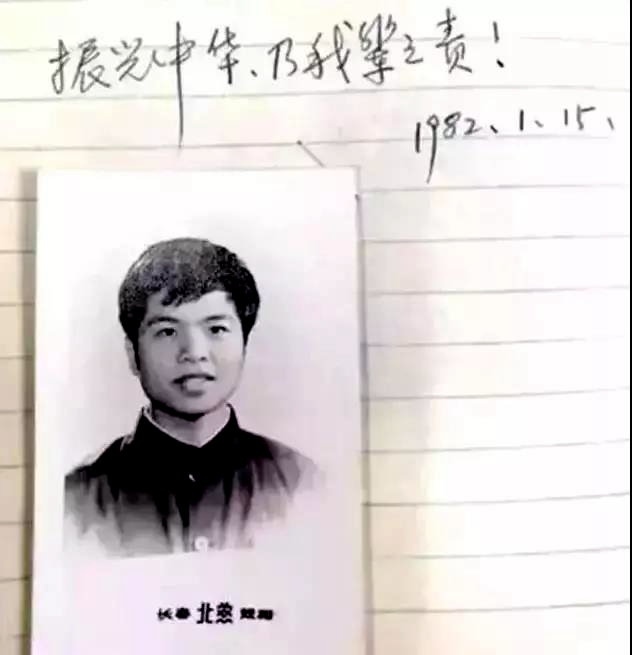 振兴中华、乃我辈之责！
1982、1、15、
长春 北